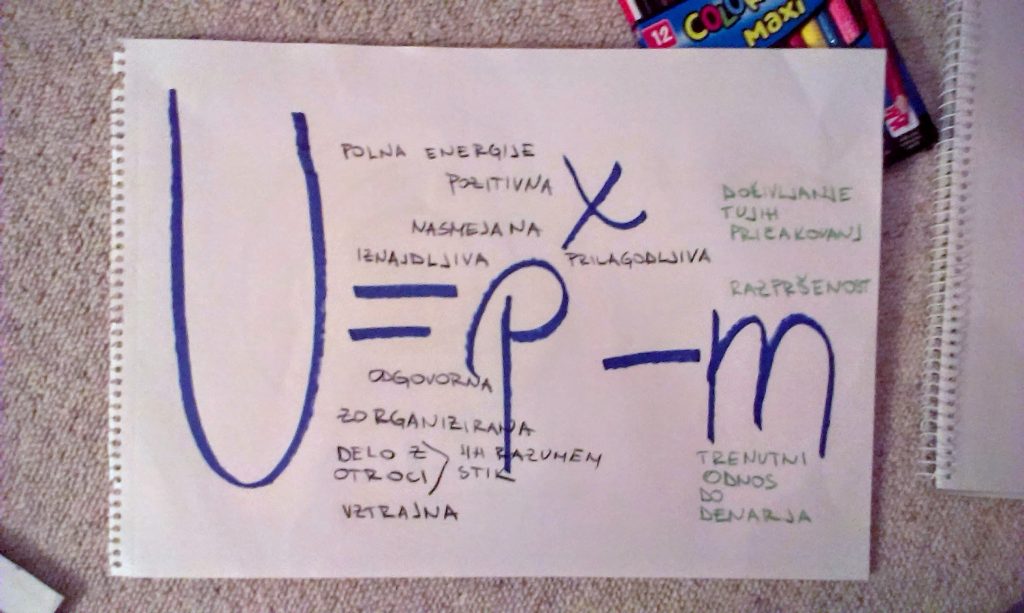 12
COLOR
MAXI
U = p x - m
POLNA ENERGIJE
POZITIVNA
NASMEJANA
IZNAJDLJIVA
PRILAGODLJIVA
ODGOVORNA
ZORGANIZIRANA
DELO Z
OTROCI
JIH RAZUMEM
STIK
VZTRAJNA
DOŽIVLJANJE
TUJIH
PRIČAKOVANJ
RAZPRŠENOST
TRENUTNI
ODNOS
DO
DENARJA